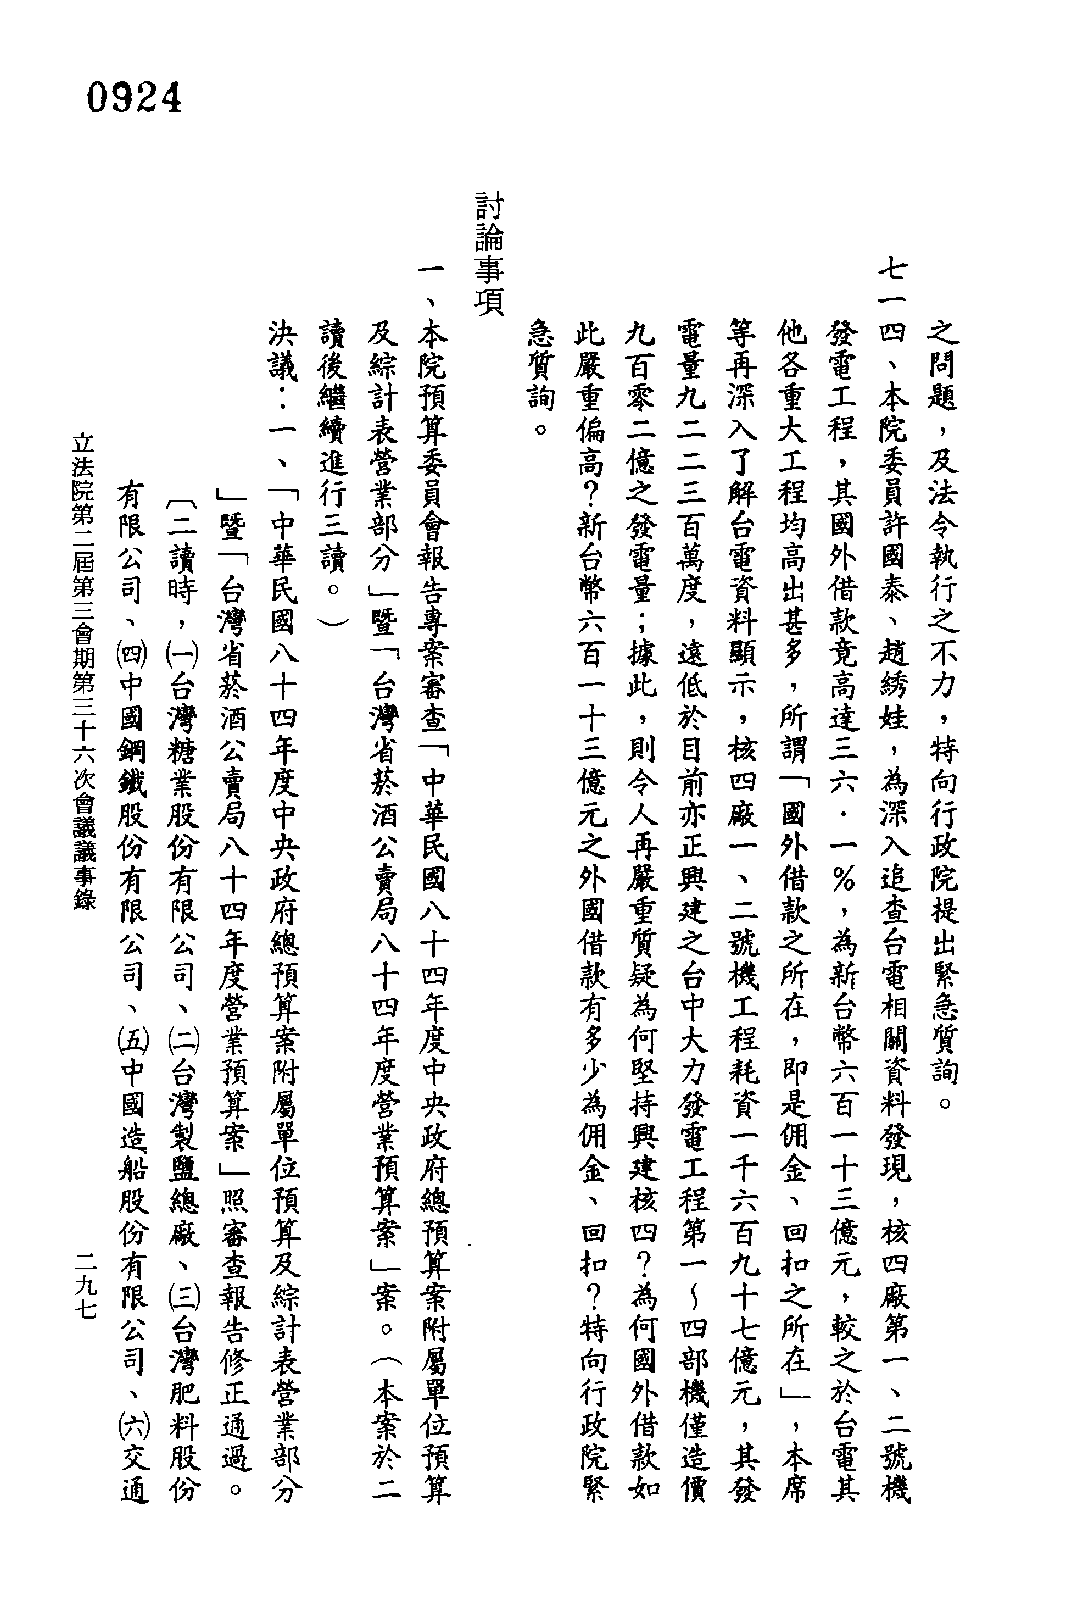 0924
之問題，及法令執行之不力，特向行政院提出緊急質詢。
七一四、本院委員許國泰、趙綉娃，為深入追查台電相關資料發現，核四廠第一、二號機
發電工程，其國外借款竟高達三六．一％，為新台幣六百一十三億元，較之於台電其
他各重大工程均高出甚多，所謂「國外借款之所在，即是佣金、回扣之所在」，本席
等再深入了解台電資料顯示，核四廠一、二號機工程耗資一千六百九十七億元，其發
電量九二二三百萬度，遠低於目前亦正興建之台中火力發電工程第一～四部機僅造價
九百零二億之發電量；據此，則令人再嚴重質疑為何堅持興建核四？為何國外借款如
此嚴重偏高？新台幣六百一十三億元之外國借款有多少為佣金、回扣？特向行政院緊
急質詢。
討論事項
一、本院預算委員會報告專案審查「中華民國八十四年度中央政府總預算案附屬單位預算
及綜計表營業部分」暨「台灣省菸酒公賣局八十四年度營業預算案」案。（本案於二
讀後繼續進行三讀。）
決議：一、「中華民國八十四年度中央政府總預算案附屬單位預算及綜計表營業部分
」暨「台灣省菸酒公賣局八十四年度營業預算案」照審查報告修正通過。
〔二讀時，㈠台灣糖業股份有限公司、㈡台灣製鹽總廠、㈢台灣肥料股份
有限公司、㈣中國鋼鐵股份有限公司、㈤中國造船股份有限公司、㈥交通
立法院第二屆第三會期第三十六次會議議事錄
二九七